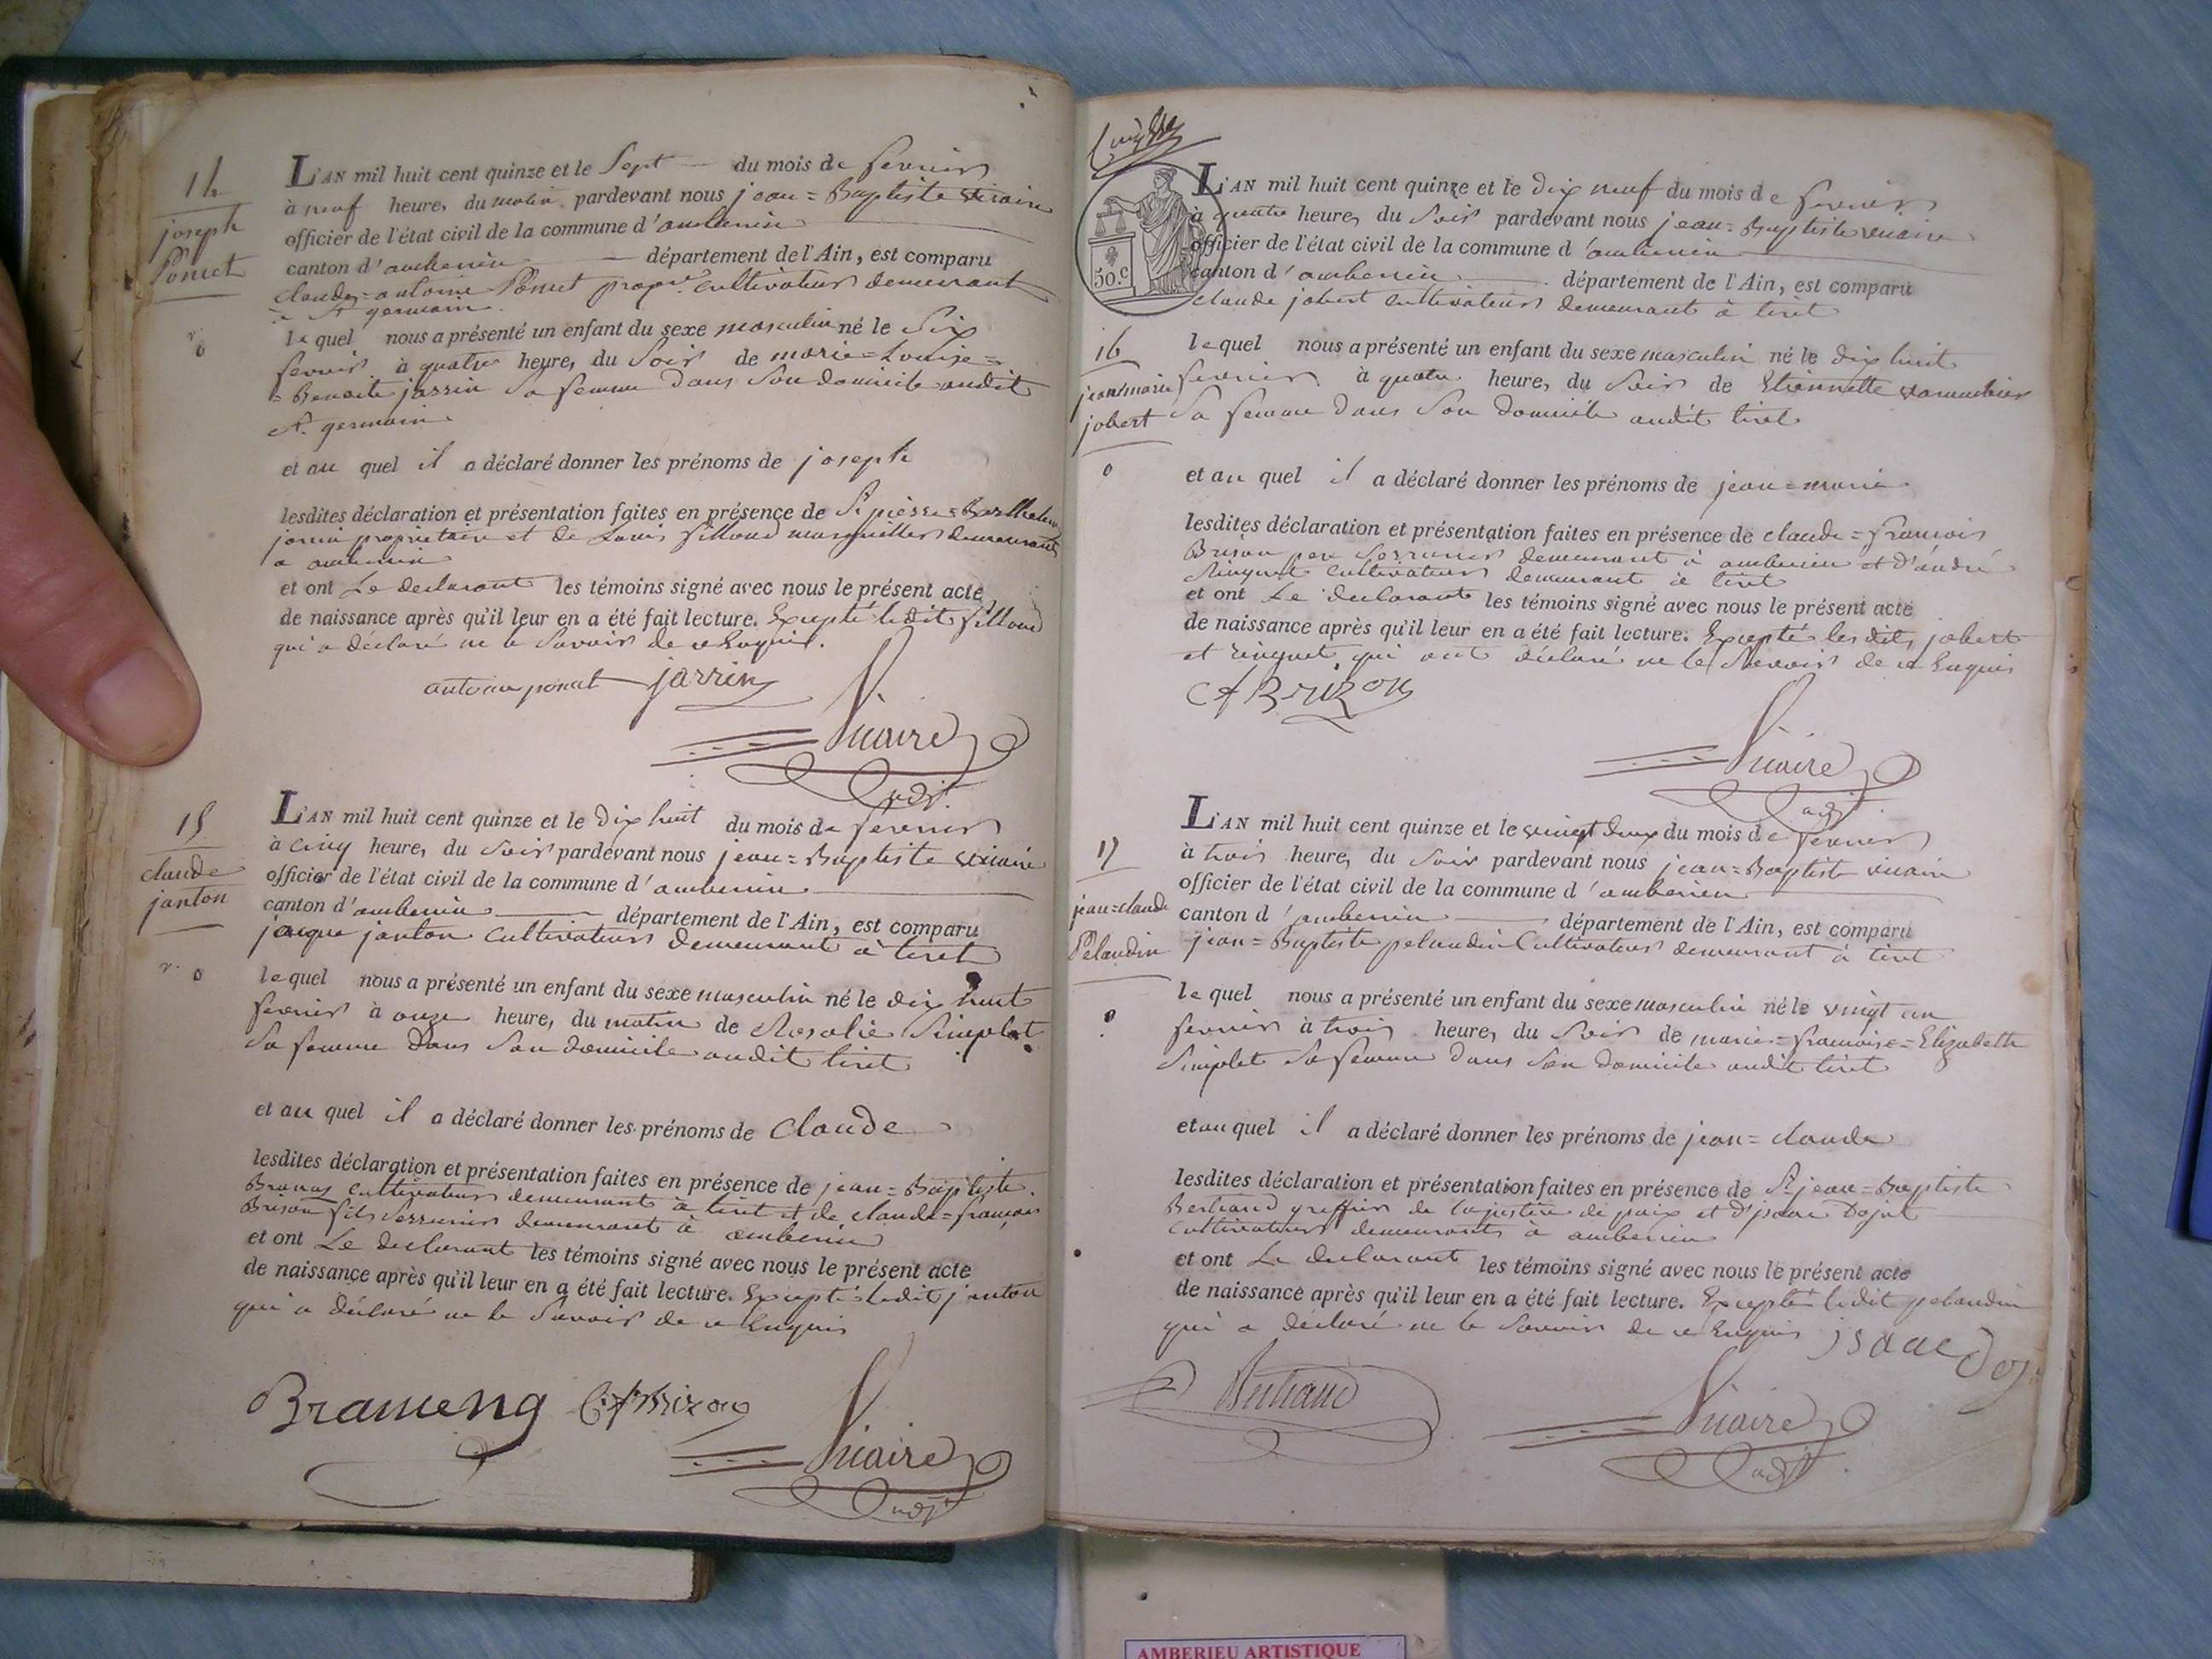 14
joseph
Ponnet
L'AN mil huit cent quinze et le Sept du mois de fevrier
à neuf heures du matin pardevant nous jean=Baptiste vicaire
officier de l'état civil de la commune d'amberieu
canton d'amberieu département de l'Ain, est comparu
claude=antoine propre. cultivateur demeurant
à St. germain
lequel nous a présenté un enfant du sexe masculin né le Six
fevrier à quatre heures du Soir de marie=Louise=
=Benoite jarrin Sa femme dans Son domicile audit
St. germain
et au quel il a déclaré donner les prénoms de joseph
lesdites déclaration et présentation faites en présence de Sr pierre=Barthelemy
jarrin propriétaire et de Louis filloud marguillier demeurants
a amberieu
et ont Le declarant les témoins signé avec nous le présent acte
de naissance après qu'il leur en a été fait lecture. Excepté ledit filloud
qui a déclaré ne le Savoir de ce Enquis.
antoine ponat jarrin
Vicaire
adjt.
15
claude
janton
L'AN mil huit cent quinze et le dix huit du mois de fevrier
à cinq heures du Soir pardevant nous jean=Baptiste vicaire
officier de l'état civil de la commune d'amberieu
canton d'amberieu département de l'Ain, est comparu
jacque janton cultivateur demeurant à tiret
lequel nous a présenté un enfant du sexe masculin né le dix huit
fevrier à onze heures du matin de Rosalie Simplet
Sa femme dans Son domicile audit tiret
et au quel il a déclaré donner les prénoms de claude
lesdites déclaration et présentation faites en présence de jean=Baptiste
cultivateur demeurant à tiret et de claude=françois
Brison fils Serrurier demeurant à amberieu
et ont Le declarant les témoins signé avec nous le présent acte
de naissance après qu'il leur en a été fait lecture. Excepté ledit janton
qui a déclaré ne le Savoir de ce Enquis
C f Brizon
Vicaire
adjt
50.c
L'AN mil huit cent quinze et le dix neuf du mois de fevrier
à quatre heures du Soir pardevant nous jean=Baptiste vicaire
officier de l'état civil de la commune d'amberieu
canton d'amberieu département de l'Ain, est comparu
claude jobert cultivateur demeurant à tiret
16
jean=marie
jobert
lequel nous a présenté un enfant du sexe masculin né le dix huit
fevrier à quatre heures du Soir de Etiennette
Sa femme dans Son domicile audit tiret
et au quel il a déclaré donner les prénoms de jean=marie
lesdites déclaration et présentation faites en présence de claude=françois
Brison pere Serrurier demeurant à amberieu et d'andré
cultivateur demeurant à tiret
et ont Le declarant les témoins signé avec nous le présent acte
de naissance après qu'il leur en a été fait lecture. Excepté lesdits jobert
et qui ont déclaré ne le Savoir de ce Enquis
Cf Brizon
Vicaire
adjt
17
jean=claude
Pelaudin
L'AN mil huit cent quinze et le vingt deux du mois de fevrier
à trois heures du Soir pardevant nous jean=Baptiste vicaire
officier de l'état civil de la commune d'amberieu
canton d'amberieu département de l'Ain, est comparu
jean=Baptiste pelaudin Cultivateur demeurant à tiret
lequel nous a présenté un enfant du sexe masculin né le vingt un
fevrier à trois heures du Soir de marie=françoise=Elizabeth
Simplet Sa femme dans Son domicile audit tiret
et au quel il a déclaré donner les prénoms de jean=claude
lesdites déclaration et présentation faites en présence de Sr jean=Baptiste
Bertrand greffier de la justice de paix et d'isaac
cultivateur demeurants à amberieu
et ont Le declarant les témoins signé avec nous le présent acte
de naissance après qu'il leur en a été fait lecture. Excepté ledit pelaudin
qui a déclaré ne le Savoir de ce Enquis isaac
Bertrand
Vicaire
adjt
AMBERIEU ARTISTIQUE